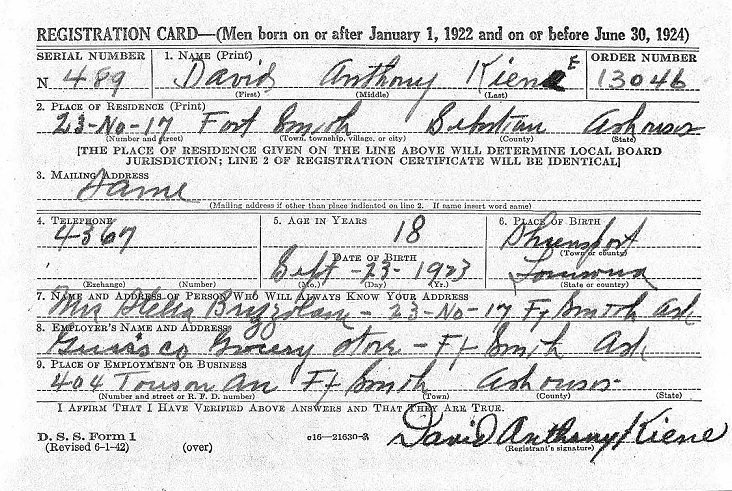 REGISTRATION CARD—(Men born on or after January 1, 1922 and on or before June 30, 1924)
SERIAL NUMBER 1. NAME (Print) ORDER NUMBER
N 489 David Anthony Kiene E 13046
(First) (Middle) (Last)
2. PLACE OF RESIDENCE (Print)
23-No-17 Fort Smith Sebastian
(Number and street) (Town, township, village, or city) (County) (State)
[THE PLACE OF RESIDENCE GIVEN ON THE LINE ABOVE WILL DETERMINE LOCAL BOARD
JURISDICTION; LINE 2 OF REGISTRATION CERTIFICATE WILL BE IDENTICAL]
3. MAILING ADDRESS
Same
(Mailing address if other than place indicated on line 2. If same insert word same)
4. TELEPHONE 5. AGE IN YEARS 6. PLACE OF BIRTH
4367 18 Shreveport
(Town or county)
DATE OF BIRTH
Sept - 23 - 1923 Louisiana
(Exchange) (Number) (Mo.) (Day) (Yr.) (State or country)
7. NAME AND ADDRESS OF PERSON WHO WILL ALWAYS KNOW YOUR ADDRESS
Mrs Stella - 23-No-17 Ft Smith Ark
8. EMPLOYER'S NAME AND ADDRESS
Grocery Store - Ft Smith Ark
9. PLACE OF EMPLOYMENT OR BUSINESS
404 Towson Av Ft Smith
(Number and street or R. F. D. number) (Town) (County) (State)
I AFFIRM THAT I HAVE VERIFIED ABOVE ANSWERS AND THAT THEY ARE TRUE.
D. S. S. Form 1
(Revised 6-1-42) (over) c16—21630-2 David Anthony Kiene
(Registrant's signature)